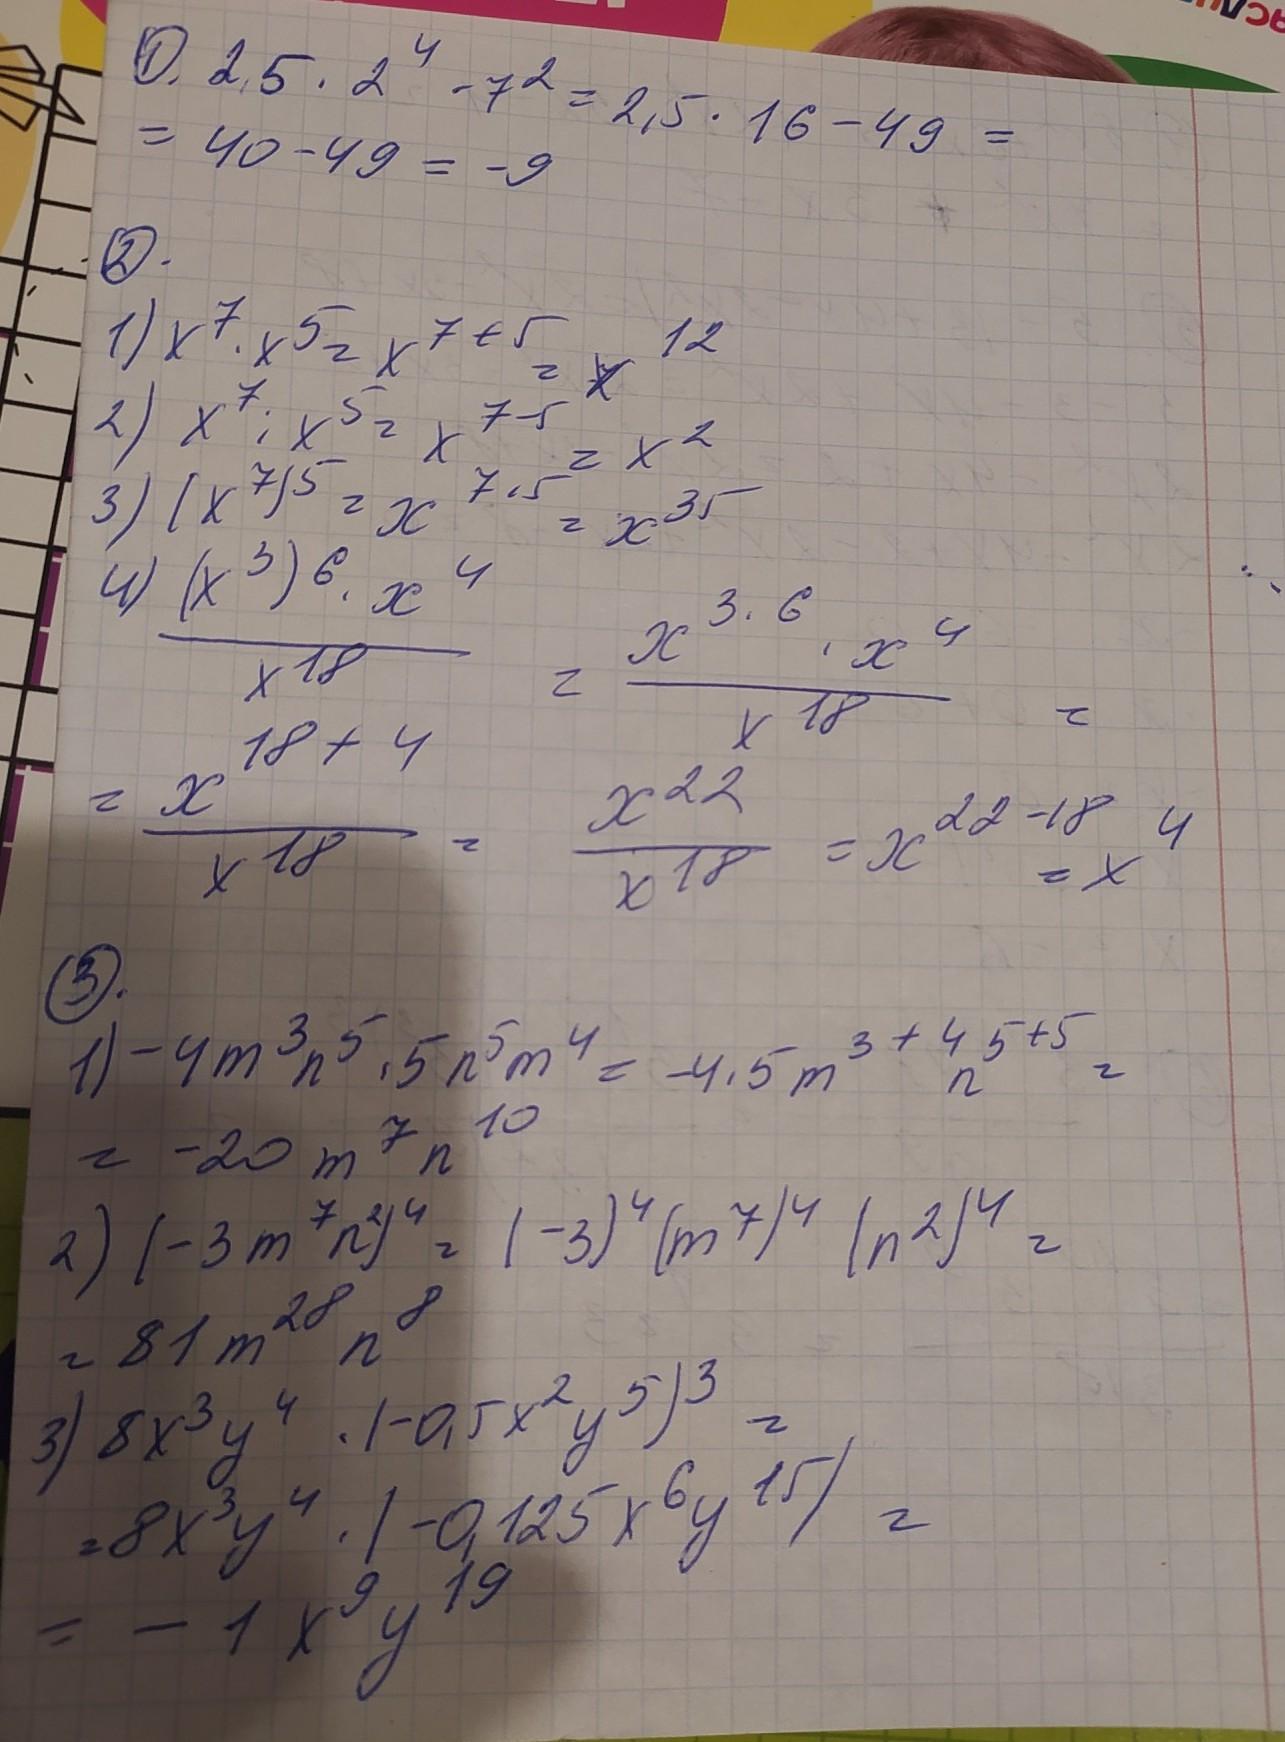 1. 2,5 · 2⁴ - 7² = 2,5 · 16 - 49 =
= 40 - 49 = -9
2.
1) x⁷ · x⁵ = x⁷⁺⁵ = x¹²
2) x⁷ : x⁵ = x⁷⁻⁵ = x²
3) (x⁷)⁵ = x^(7·5) = x³⁵
4) (x³)⁶ · x⁴ / x¹⁸ = x^(3·6) · x⁴ / x¹⁸ =
= x¹⁸⁺⁴ / x¹⁸ = x²² / x¹⁸ = x²²⁻¹⁸ = x⁴
3.
1) -4m³n⁵ · 5n⁵m⁴ = -4·5m³⁺⁴n⁵⁺⁵ =
= -20m⁷n¹⁰
2) (-3m⁷n²)⁴ = (-3)⁴(m⁷)⁴(n²)⁴ =
= 81m²⁸n⁸
3) 8x³y⁴ · (-0,5x²y⁵)³ =
= 8x³y⁴ · (-0,125x⁶y¹⁵) =
= -1x⁹y¹⁹